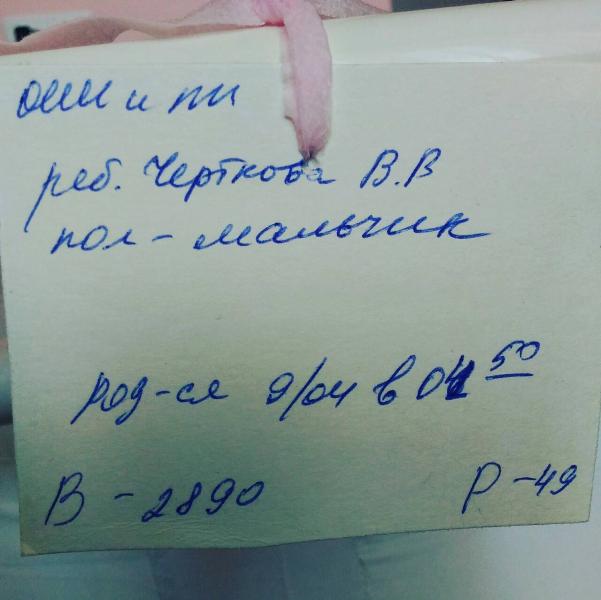 ОПН и ПН
реб. Черткова В.В
пол - мальчик
род-ся 9/04 в 04 50
В - 2890
Р - 49